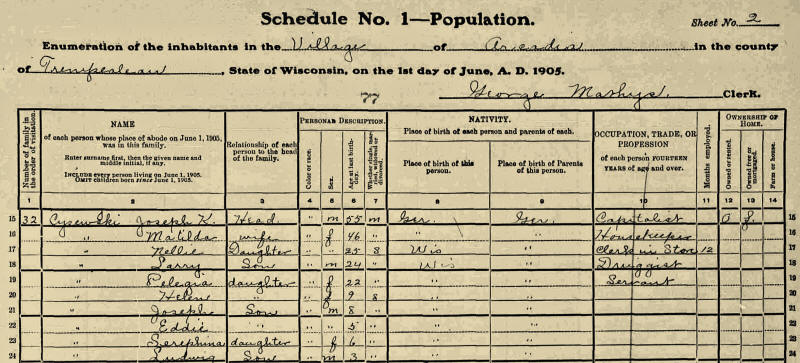 Schedule No. 1—Population.
Sheet No. 2
Enumeration of the inhabitants in the Village of Arcadia in the county
of Trempealeau, State of Wisconsin, on the 1st day of June, A. D. 1905.
77
George Mathys. Clerk.
Number of family in the order of visitation.
NAME
of each person whose place of abode on June 1, 1905, was in this family.
Enter surname first, then the given name and middle initial, if any.
INCLUDE every person living on June 1, 1905.
OMIT children born since June 1, 1905.
Relationship of each person to the head of the family.
PERSONAL DESCRIPTION.
Color or race.
Sex.
Age at last birthday.
Whether single, married, widowed or divorced.
NATIVITY.
Place of birth of each person and parents of each.
Place of birth of this person.
Place of birth of Parents of this person.
OCCUPATION, TRADE, OR PROFESSION
of each person FOURTEEN YEARS of age and over.
Months employed.
OWNERSHIP OF HOME.
Owned or rented.
Owned free or mortgaged.
Farm or house.
1 2 3 4 5 6 7 8 9 10 11 12 13 14
15 32 Cysewski Joseph K. Head " m 55 m Ger. Ger. Capitalist O f. 15
16 " Matilda wife " f 46 " " " Housekeeper 16
17 " Nellie Daughter " " 25 S Wis " Clerk in Stor 12 17
18 " Larry Son " m 24 " Wis " Druggist 18
19 " Pelegia daughter " f 22 " " " Servant 19
20 " Helen " " f 9 S " " 20
21 " Joseph Son " m 8 " " " 21
22 " Eddie " " " 5 " " " 22
23 " Serephina daughter " f 6 " " " 23
24 " Ludwig Son " m 3 " " " 24